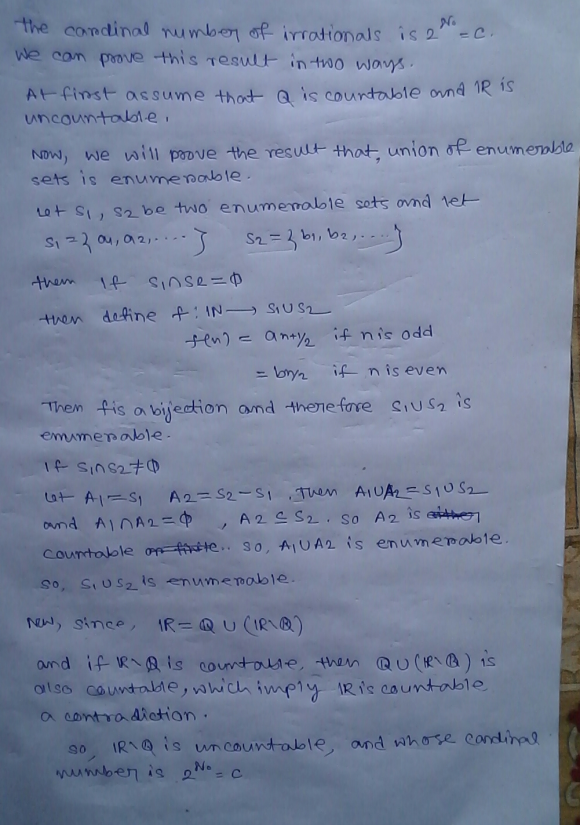 The cardinal number of irrationals is 2^ℵ₀ = c.
We can prove this result in two ways.
At first assume that Q is countable and IR is
uncountable.
Now, we will prove the result that, union of enumerable
sets is enumerable.
Let S1, S2 be two enumerable sets and let
S1 = { a1, a2, .... } S2 = { b1, b2, .... }
then if S1∩S2 = Φ
then define f : IN → S1∪S2
f(n) = a n+1/2 if n is odd
= b n/2 if n is even
Then f is a bijection and therefore S1∪S2 is
enumerable.
If S1∩S2 ≠ Φ
Let A1 = S1 A2 = S2 - S1. Then A1∪A2 = S1∪S2
and A1∩A2 = Φ, A2 ⊆ S2. So A2 is either
countable or finite.. So, A1∪A2 is enumerable.
So, S1∪S2 is enumerable.
Now, since, IR = Q ∪ (IR\Q)
and if IR\Q is countable, then Q∪(IR\Q) is
also countable, which imply IR is countable
a contradiction.
So, IR\Q is uncountable, and whose cardinal
number is 2^ℵ₀ = c